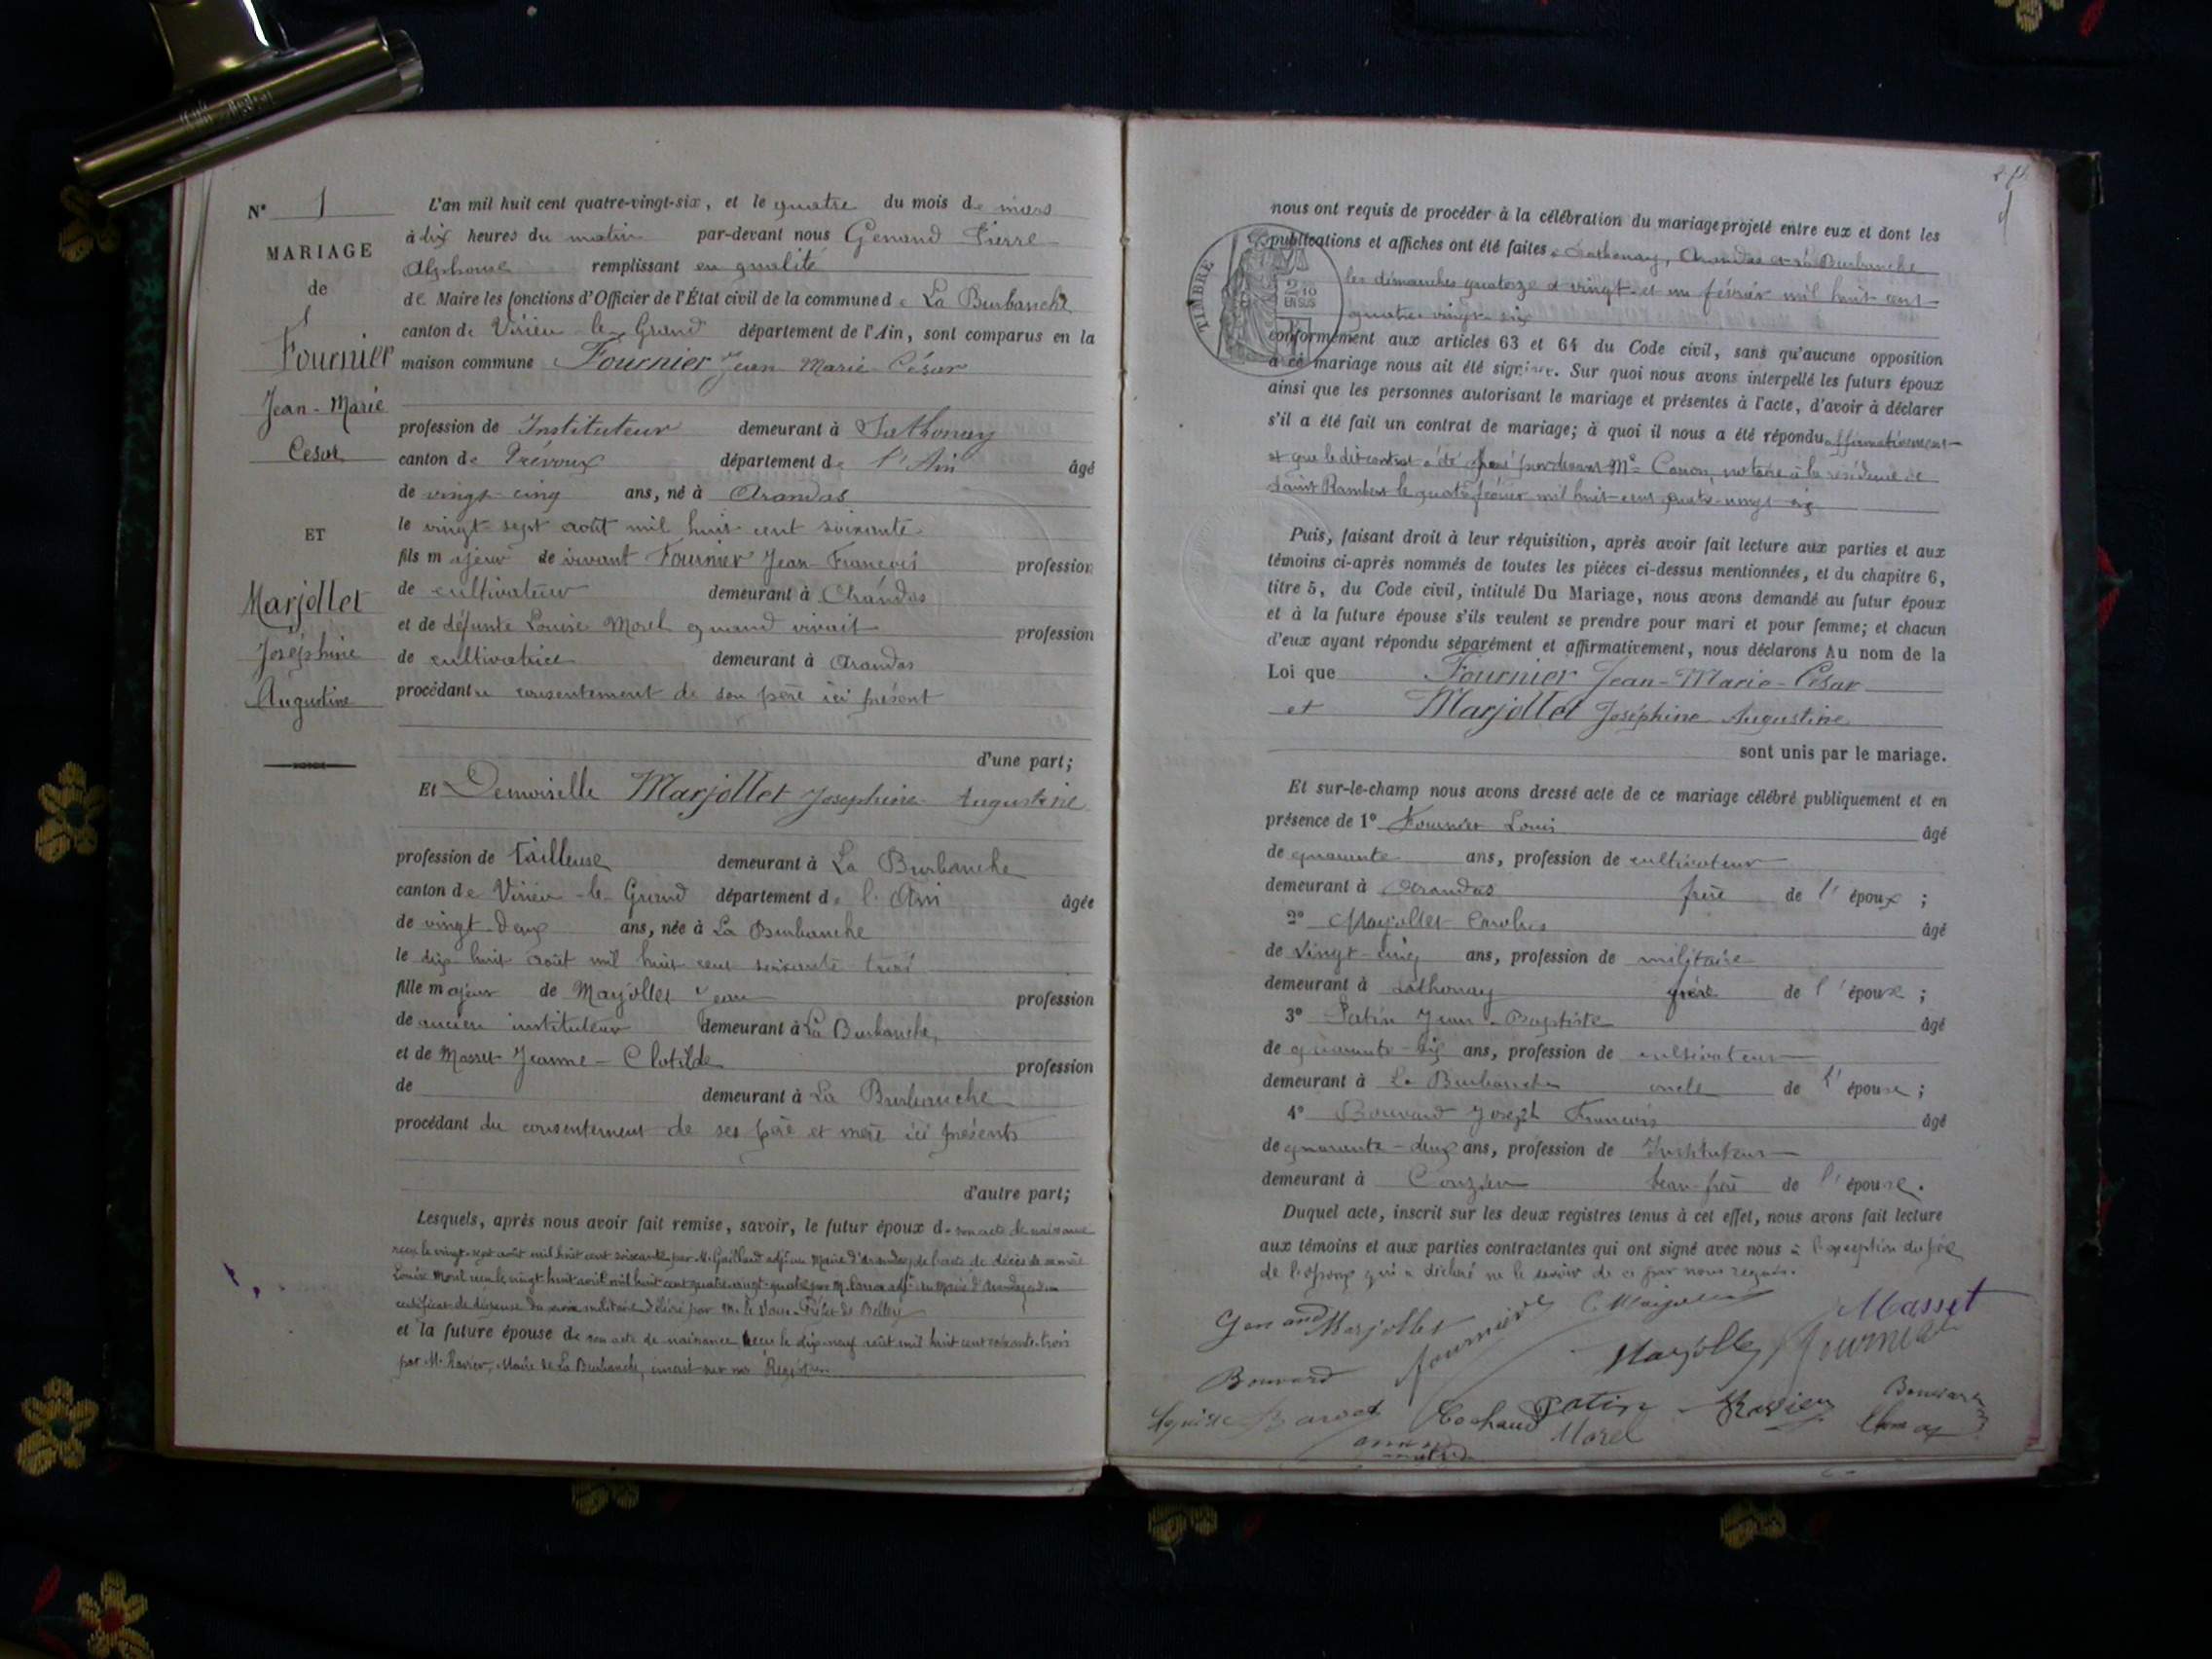 N° 1
MARIAGE
de
Fournier
Jean-Marie
César
ET
Marjollet
Joséphine
Augustine
L'an mil huit cent quatre-vingt-six, et le quatre du mois de mars
à dix heures du matin par-devant nous Genand Pierre
Alphonse remplissant en qualité
de Maire les fonctions d'Officier de l'État civil de la commune de La Burbanche
canton de Virieu-le-Grand département de l'Ain, sont comparus en la
maison commune Fournier Jean Marie César
profession de Instituteur demeurant à Sathonay
canton de Trévoux département de l'Ain âgé
de vingt-cinq ans, né à Arandas
le vingt-sept août mil huit cent soixante
fils majeur de vivant Fournier Jean-François profession
de cultivateur demeurant à Arandas
et de défunte Louise Morel quand vivait profession
de cultivatrice demeurant à Arandas
procédant du consentement de son père ici présent
d'une part;
Et Demoiselle Marjollet Joséphine Augustine
profession de tailleuse demeurant à La Burbanche
canton de Virieu-le-Grand département de l'Ain âgée
de vingt-deux ans, née à La Burbanche
le dix huit août mil huit cent soixante trois
fille majeur de Marjollet Jean profession
de ancien instituteur demeurant à La Burbanche,
et de Masset Jeanne-Clotilde profession
de demeurant à La Burbanche
procédant du consentement de ses père et mère ici présents
d'autre part;
Lesquels, après nous avoir fait remise, savoir, le futur époux de son acte de naissance
reçu le vingt-sept août mil huit cent soixante par M. adjoint au Maire d'Arandas, de l'acte de décès de sa mère
Louise Morel reçu le vingt-huit avril mil huit cent quatre-vingt-quatre par M. adjt au Maire d'Arandas, d'un
certificat de dispense du service militaire délivré par M. le Sous-Préfet de Belley
et la future épouse de son acte de naissance reçu le dix-neuf août mil huit cent soixante-trois
par M. Ravier, Maire de La Burbanche, inscrit sur nos Registres.
nous ont requis de procéder à la célébration du mariage projeté entre eux et dont les
publications et affiches ont été faites à Sathonay, Arandas et à La Burbanche
les dimanches quatorze et vingt-et-un février mil huit cent
quatre vingt-six
conformément aux articles 63 et 64 du Code civil, sans qu'aucune opposition
à ce mariage nous ait été signifiée. Sur quoi nous avons interpellé les futurs époux
ainsi que les personnes autorisant le mariage et présentes à l'acte, d'avoir à déclarer
s'il a été fait un contrat de mariage; à quoi il nous a été répondu affirmativement
et que le dit contrat a été passé par devant Me notaire à la résidence de
Saint Rambert le quatre février mil huit cent quatre-vingt-six
Puis, faisant droit à leur réquisition, après avoir fait lecture aux parties et aux
témoins ci-après nommés de toutes les pièces ci-dessus mentionnées, et du chapitre 6,
titre 5, du Code civil, intitulé Du Mariage, nous avons demandé au futur époux
et à la future épouse s'ils veulent se prendre pour mari et pour femme; et chacun
d'eux ayant répondu séparément et affirmativement, nous déclarons Au nom de la
Loi que Fournier Jean-Marie-César
et Marjollet Joséphine Augustine
sont unis par le mariage.
Et sur-le-champ nous avons dressé acte de ce mariage célébré publiquement et en
présence de 1° Fournier Louis âgé
de quarante ans, profession de cultivateur
demeurant à Arandas frère de l'époux;
2° Marjollet âgé
de vingt-cinq ans, profession de militaire
demeurant à Sathonay frère de l'épouse;
3° Patin Jean-Baptiste âgé
de quarante-six ans, profession de cultivateur
demeurant à La Burbanche oncle de l'épouse;
4° Bouvard Joseph François âgé
de quarante-deux ans, profession de Instituteur
demeurant à Conzieu beau-frère de l'épouse.
Duquel acte, inscrit sur les deux registres tenus à cet effet, nous avons fait lecture
aux témoins et aux parties contractantes qui ont signé avec nous à l'exception du père
de l'époux qui a déclaré ne le savoir de ce par nous requis.
Genand Marjollet Fournier C Marjollet Masset
Marjollet Fournier
Bouvard
Cochaud Patin Ravier Bouvard
Morel
TIMBRE
EN SUS